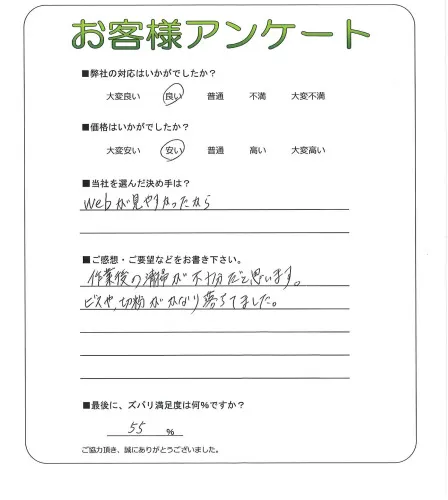 お客様アンケート
■弊社の対応はいかがでしたか？
大変良い 良い 普通 不満 大変不満
■価格はいかがでしたか？
大変安い 安い 普通 高い 大変高い
■当社を選んだ決め手は？
webが見やすかったから
■ご感想・ご要望などをお書き下さい。
作業後の清掃が不十分だと思います。
ビスや、切粉がかなり落ちてました。
■最後に、ズバリ満足度は何％ですか？
55 ％
ご協力頂き、誠にありがとうございました。